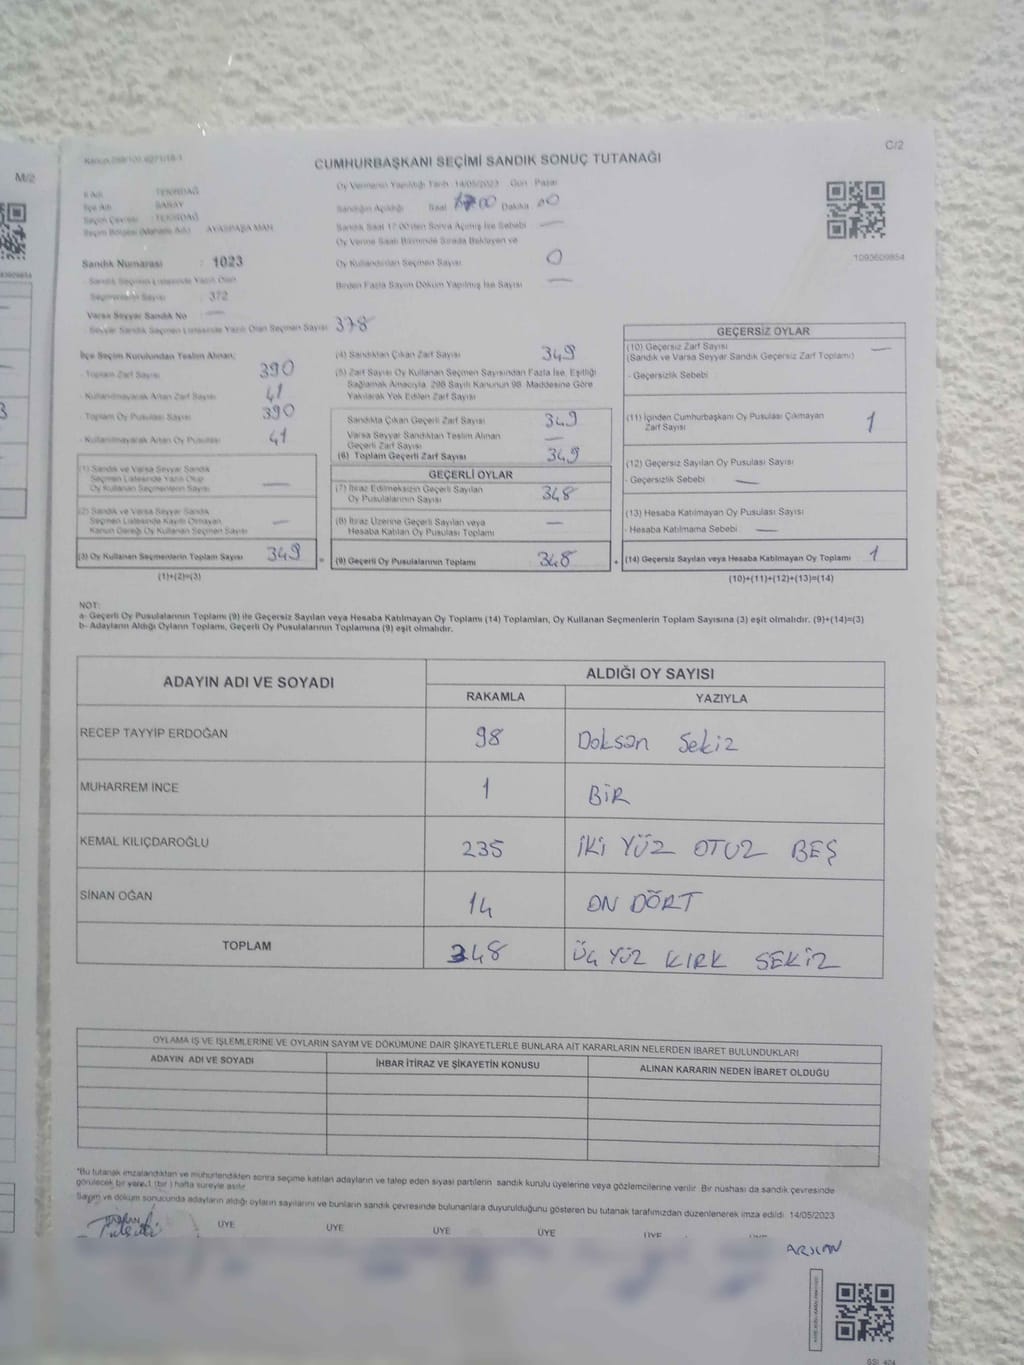 C/2
M/2
CUMHURBAŞKANI SEÇİMİ SANDIK SONUÇ TUTANAĞI
İl Adı : TEKİRDAĞ
İlçe Adı : SARAY
Seçim Çevresi : TEKİRDAĞ
Seçim Bölgesi (Mahalle Adı) : AYASPAŞA MAH.
Sandık Numarası : 1023
Sandık Seçmen Listesinde Yazılı Olan
Seçmenlerin Sayısı : 372
Varsa Seyyar Sandık No —
Seyyar Sandık Seçmen Listesinde Yazılı Olan Seçmen Sayısı 378
Oy Vermenin Yapıldığı Tarih 14/05/2023 Gün Pazar
Sandığın Açıldığı Saat 17 00 Dakika 00
Sandık Saat 17:00'den Sonra Açılmış İse Sebebi —
Oy Verme Saati Bitiminde Sırada Bekleyen ve
Oy Kullandırılan Seçmen Sayısı 0
Birden Fazla Sayım Döküm Yapılmış İse Sayısı —
1093609854
İlçe Seçim Kurulundan Teslim Alınan;
Toplam Zarf Sayısı 390
- Kullanılmayarak Artan Zarf Sayısı 41
- Toplam Oy Pusulası Sayısı 390
- Kullanılmayarak Artan Oy Pusulası 41
(1) Sandık ve Varsa Seyyar Sandık
Seçmen Listesinde Yazılı Olup
Oy Kullanan Seçmenlerin Sayısı —
(2) Sandık ve Varsa Seyyar Sandık
Seçmen Listesinde Kayıtlı Olmayan
Kanun Gereği Oy Kullanan Seçmen Sayısı —
(3) Oy Kullanan Seçmenlerin Toplam Sayısı 349
(1)+(2)=(3)
(4) Sandıktan Çıkan Zarf Sayısı 349
(5) Zarf Sayısı Oy Kullanan Seçmen Sayısından Fazla İse, Eşitliği
Sağlamak Amacıyla, 298 Sayılı Kanunun 98. Maddesine Göre
Yakılarak Yok Edilen Zarf Sayısı
Sandıkta Çıkan Geçerli Zarf Sayısı 349
Varsa Seyyar Sandıktan Teslim Alınan
Geçerli Zarf Sayısı —
(6) Toplam Geçerli Zarf Sayısı 349
GEÇERLİ OYLAR
(7) İtiraz Edilmeksizin Geçerli Sayılan
Oy Pusulalarının Sayısı 348
(8) İtiraz Üzerine Geçerli Sayılan veya
Hesaba Katılan Oy Pusulası Toplamı —
= (9) Geçerli Oy Pusulalarının Toplamı 348
GEÇERSİZ OYLAR
(10) Geçersiz Zarf Sayısı —
(Sandık ve Varsa Seyyar Sandık Geçersiz Zarf Toplamı)
- Geçersizlik Sebebi
(11) İçinden Cumhurbaşkanı Oy Pusulası Çıkmayan
Zarf Sayısı 1
(12) Geçersiz Sayılan Oy Pusulası Sayısı
- Geçersizlik Sebebi —
(13) Hesaba Katılmayan Oy Pusulası Sayısı
- Hesaba Katılmama Sebebi —
+ (14) Geçersiz Sayılan veya Hesaba Katılmayan Oy Toplamı 1
(10)+(11)+(12)+(13)=(14)
NOT:
a- Geçerli Oy Pusulalarının Toplamı (9) ile Geçersiz Sayılan veya Hesaba Katılmayan Oy Toplamı (14) Toplamları, Oy Kullanan Seçmenlerin Toplam Sayısına (3) eşit olmalıdır. (9)+(14)=(3)
b- Adayların Aldığı Oyların Toplamı, Geçerli Oy Pusulalarının Toplamına (9) eşit olmalıdır.
ADAYIN ADI VE SOYADI ALDIĞI OY SAYISI
RAKAMLA YAZIYLA
RECEP TAYYİP ERDOĞAN 98 Doksan Sekiz
MUHARREM İNCE 1 BİR
KEMAL KILIÇDAROĞLU 235 İKİ YÜZ OTUZ BEŞ
SİNAN OĞAN 14 ON DÖRT
TOPLAM 348 ÜÇ YÜZ KIRK SEKİZ
OYLAMA İŞ VE İŞLEMLERİNE VE OYLARIN SAYIM VE DÖKÜMÜNE DAİR ŞİKAYETLERLE BUNLARA AİT KARARLARIN NELERDEN İBARET BULUNDUKLARI
ADAYIN ADI VE SOYADI İHBAR İTİRAZ VE ŞİKAYETİN KONUSU ALINAN KARARIN NEDEN İBARET OLDUĞU
*Bu tutanak imzalandıktan ve mühürlendikten sonra seçime katılan adayların ve talep eden siyasi partilerin sandık kurulu üyelerine veya gözlemcilerine verilir. Bir nüshası da sandık çevresinde
görülecek bir yere 1 (bir ) hafta süreyle asılır.
Sayım ve döküm sonucunda adayların aldığı oyların sayılarını ve bunların sandık çevresinde bulunanlara duyurulduğunu gösteren bu tutanak tarafımızdan düzenlenerek imza edildi. 14/05/2023
BAŞKAN ÜYE ÜYE ÜYE ÜYE ÜYE
ARSLAN